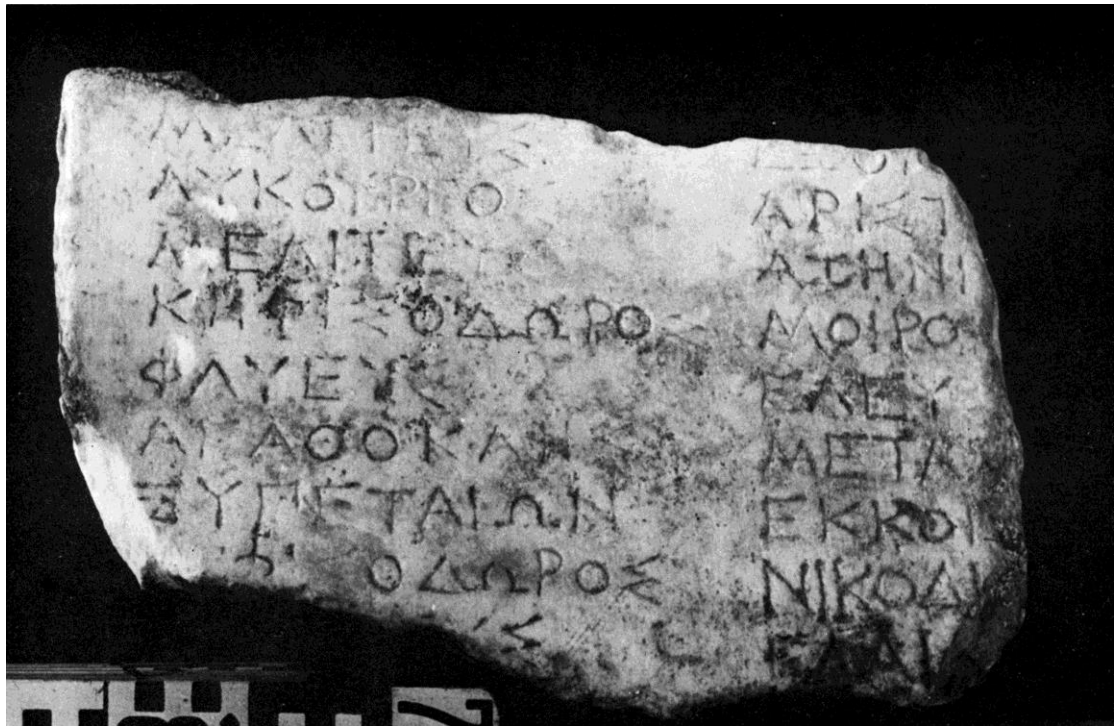 ΜΕΛΙΤΕΥΣ
ΛΥΚΟΥΡΓΟ
ΜΕΛΙΤΕΥΣ
ΚΗΦΙΣΟΔΩΡΟΣ
ΦΛΥΕΥΣ
ΑΓΑΘΟΚΛΗ
ΞΥΠΕΤΑΙΩΝ
ΟΔΩΡΟΣ
ΑΡΚΙ
ΑΘΗΝΙ
ΜΟΙΡΟ
ΕΛΕΥ
ΜΕΤΑ
ΕΚΚΟΙ
ΝΙΚΟΔΙ
ΕΛΑΙ